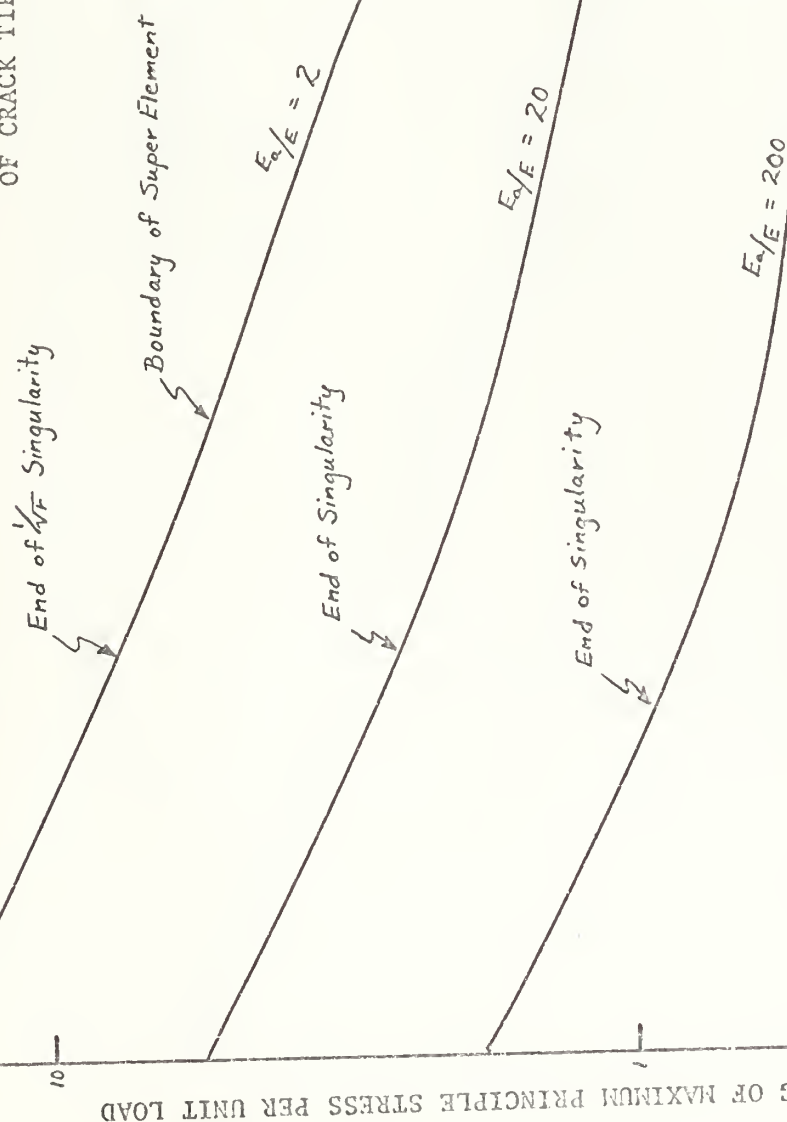 OF CRACK TIP
End of 1/√r Singularity
Boundary of Super Element
Ea/E = 2
End of Singularity
Ea/E = 20
End of Singularity
Ea/E = 200
10
1
OF MAXIMUM PRINCIPLE STRESS PER UNIT LOAD